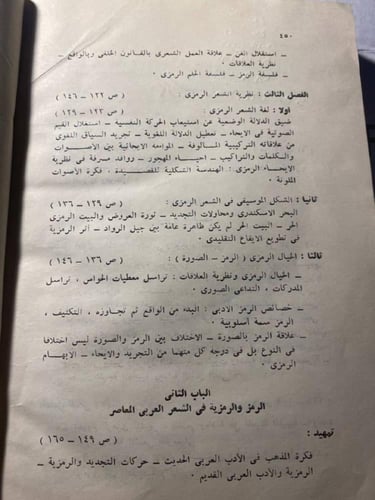 ٤٥٠
ــ استقلال الفن ــ علاقة العمل الشعرى بالقانون الخلقى وبالواقع ــ
نظرية العلاقات ٠
ــ فلسفة الرمز ــ فلسفة الحلم الرمزى ٠
الفصل الثالث : نظرية الشعر الرمزى : ( ص ١٢٢ ــ ١٤٦ )
أولا : لغة الشعر الرمزى : ( ص ١٢٣ ــ ١٢٩ )
ضيق الدلالة الوضعية عن استيعاب الحركة النفسية ــ استغلال القيم
الصوتية فى الايحاء ــ تعطيل الدلالة اللغوية ــ تجريد السياق اللغوى
من علاقاته التركيبية المألوفة ــ المواءمة الايحائية بين الأصوات
والكلمات والتراكيب ــ احياء المهجور ــ روافد مصرفة فى نظرية
الايحاء الرمزى : الهندسة الشكلية للقصيدة ، فكرة الأصوات
الملونة ٠
ثانيا : الشكل الموسيقى فى الشعر الرمزى : ( ص ١٢٩ ــ ١٣٦ )
البحر الاسكندرى ومحاولات التجديد ــ ثورة العروض والبيت الرمزى
الحر ــ البيت الحر لم يكن ظاهرة عامة بين جيل الرواد ــ أثر الرمزية
فى تطويع الايقاع التقليدى ٠
ثالثا : الخيال الرمزى ( الرمز ــ الصورة ) : ( ص ١٣٦ ــ ١٤٦ )
ــ الخيال الرمزى ونظرية العلاقات : تراسل معطيات الحواس ، تراسل
المدركات ، التداعى الصورى ٠
ــ خصائص الرمز الأدبى : البدء من الواقع ثم تجاوزه ، التكثيف ،
الرمز سمة أسلوبية ٠
ــ علاقة الرمز بالصورة ــ الاختلاف بين الرمز والصورة ليس اختلافا
فى النوع بل فى درجة كل منهما من التجريد والايحاء ــ الابهام
الرمزى ٠
الباب الثانى
الرمز والرمزية فى الشعر العربى المعاصر
تمهيد : ( ص ١٤٩ ــ ١٦٥ )
فكرة المذهب فى الأدب العربى الحديث ــ حركات التجديد والرمزية ــ
الرمزية والأدب العربى القديم ٠